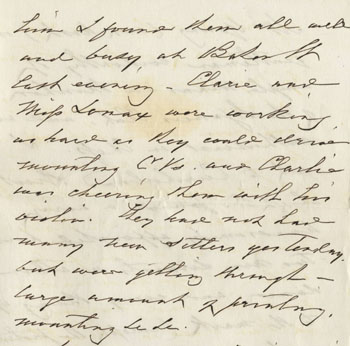 him I found them all well
and busy, at Baker St
last evening - Clarie and
Miss Lomax were working
as hard as they could drive
mounting CVs and Charlie
was cheering them with his
violin. They had not had
many new sitters yesterday,
but were getting through -
large amount of printing,
mounting &c &c.